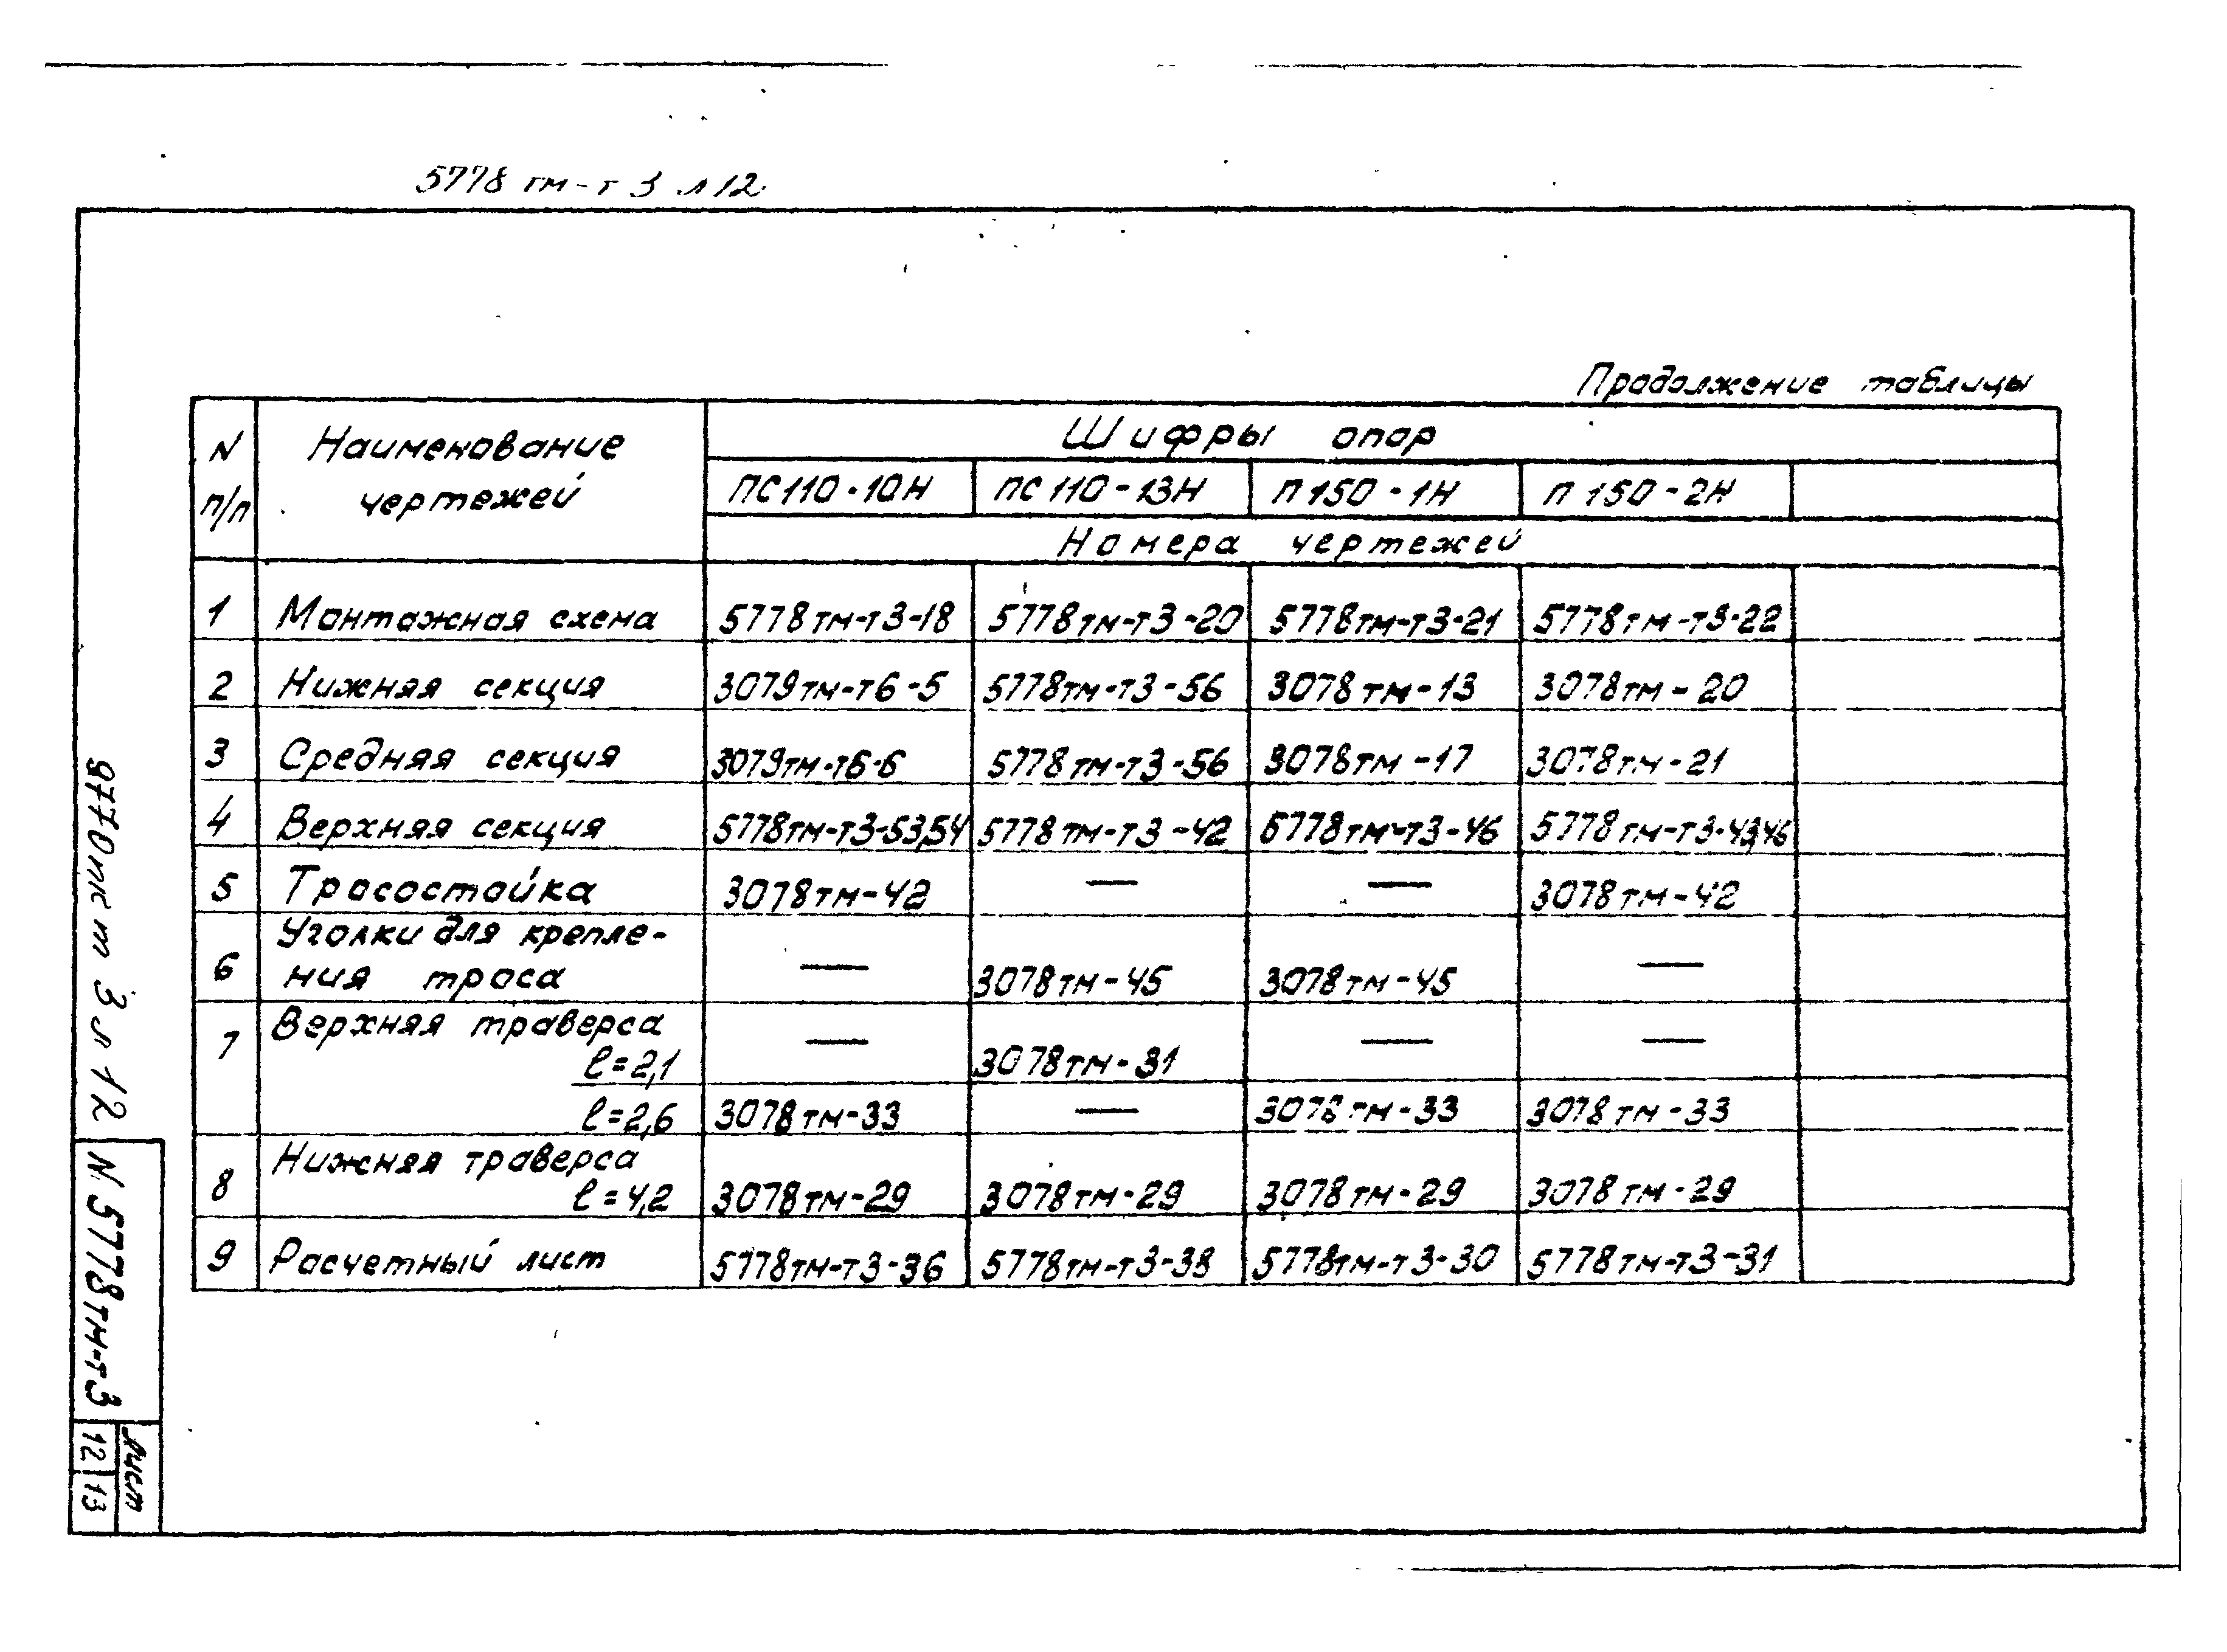 5778 тм-т 3 л 12
Продолжение таблицы
N п/п
Наименование чертежей
Шифры опор
ПС110-10Н ПС110-13Н П150-1Н П150-2Н
Номера чертежей
1 Монтажная схема 5778тм-т3-18 5778тм-т3-20 5778тм-т3-21 5778тм-т3-22
2 Нижняя секция 3079тм-т6-5 5778тм-т3-56 3078тм-13 3078тм-20
3 Средняя секция 3079тм-т6-6 5778тм-т3-56 3078тм-17 3078тм-21
4 Верхняя секция 5778тм-т3-53,54 5778тм-т3-42 5778тм-т3-46 5778тм-т3-43,46
5 Тросостойка 3078тм-42 — — 3078тм-42
Уголки для крепле-
6 ния троса — 3078тм-45 3078тм-45 —
7 Верхняя траверса
ℓ=2,1 — 3078тм-31 — —
ℓ=2,6 3078тм-33 — 3078тм-33 3078тм-33
8 Нижняя траверса
ℓ=4,2 3078тм-29 3078тм-29 3078тм-29 3078тм-29
9 Расчетный лист 5778тм-т3-36 5778тм-т3-38 5778тм-т3-30 5778тм-т3-31
3 л 12
N 5778тм-т3
Лист
12 13